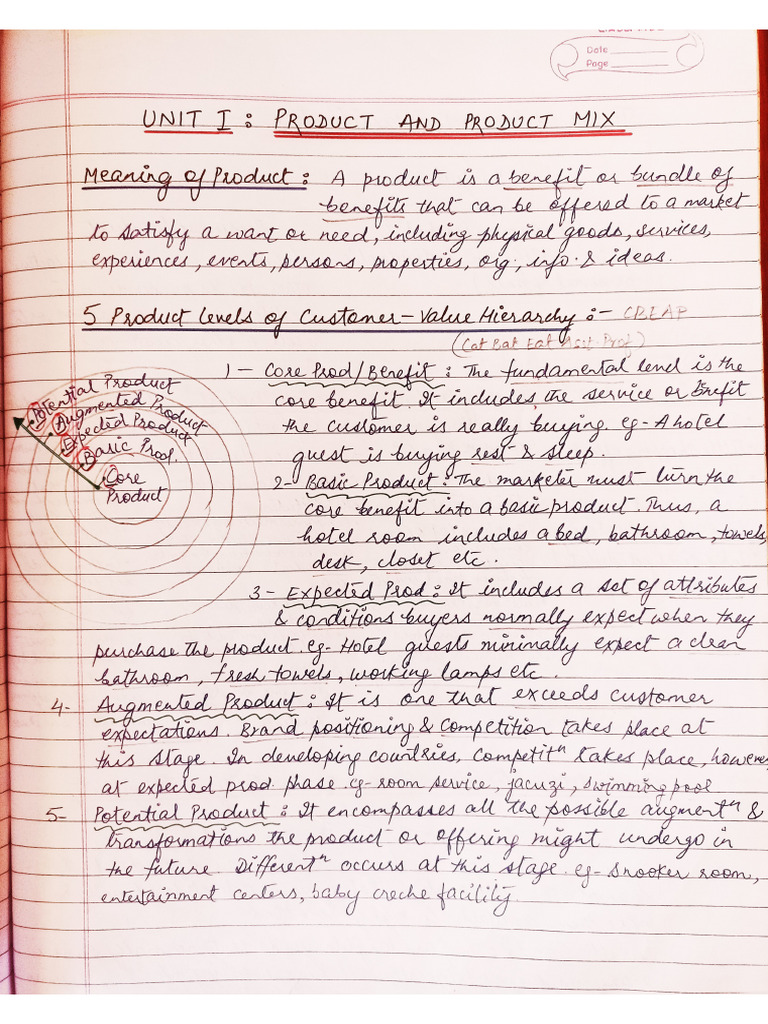 Date
Page
UNIT I : PRODUCT AND PRODUCT MIX
Meaning of Product : A product is a benefit or bundle of
benefits that can be offered to a market
to satisfy a want or need, including physical goods, services,
experiences, events, persons, properties, org., info. & ideas.
5 Product Levels of Customer-Value Hierarchy :-
(Cat Bat Eat Asst. Prof)
1- Core Prod/Benefit : The fundamental level is the
core benefit. It includes the service or benefit
the customer is really buying. eg- A hotel
guest is buying rest & sleep.
Potential Product
Augmented Product
Expected Product
Basic Prod.
Core
Product
2- Basic Product : The marketer must turn the
core benefit into a basic product. Thus, a
hotel room includes a bed, bathroom, towels,
desk, closet etc.
3- Expected Prod : It includes a set of attributes
& conditions buyers normally expect when they
purchase the product. eg- Hotel guests minimally expect a clean
bathroom, fresh towels, working lamps etc.
4- Augmented Product : It is one that exceeds customer
expectations. Brand positioning & Competition takes place at
this stage. In developing countries, Competitⁿ takes place, however
at expected prod. phase. eg- room service, jacuzi, swimming pool
5- Potential Product : It encompasses all the possible augmentⁿ &
transformations the product or offering might undergo in
the future. Differentⁿ occurs at this stage. eg- snooker room,
entertainment centers, baby creche facility.